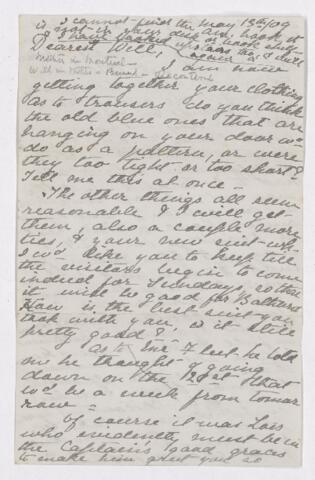 I cannot find the May 13th/09
is not in your
I have looked upstairs too & still
Dearest Will,
Mother in Montreal -
Will in Metis -
I am now
getting together your clothing
as to trousers do you think
the old blue ones that are
hanging on your door wd
do as a pattern, or were
they too tight or too short?
Tell me this at once -
The other things all seem
reasonable & I will get
them, also a couple more
ties, & your new suit wh
I wd like you to keep till
the visitors begin to come
indeed for Sundays, so then
it will be good for
How is the best suit you
took with you, is it still
pretty good?
As to he told
me he thought of going
down on the 21st that
wd be a week from tomor
row -
Of course it was Lois
who evidently must be in
the Captain's good graces
to make him grant you so